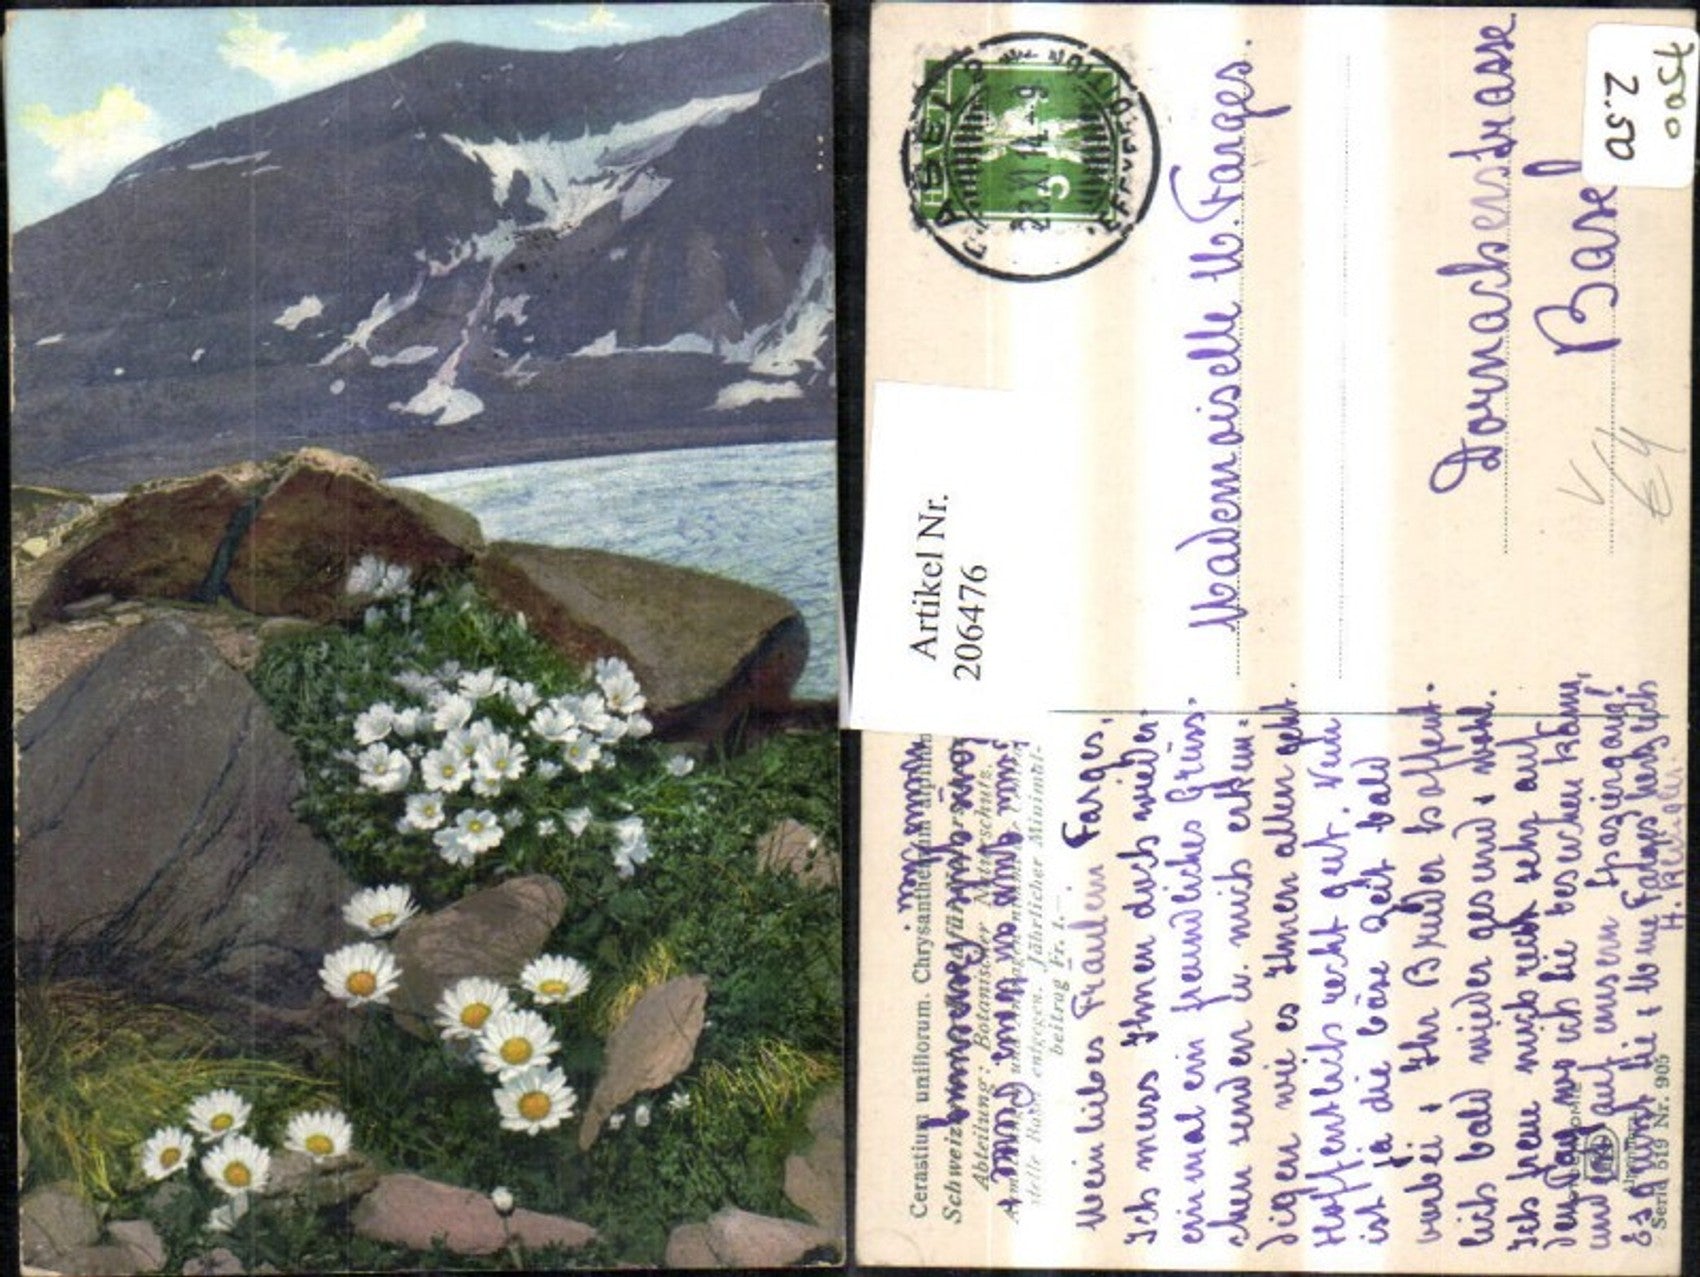 BASEL 2
23.XI.14.-9
HELVETIA
5
oast
2.50
€4
Artikel Nr.
206476
Mademoiselle M. Farges.
Dornacherstrasse
Basel
Cerastium uniflorum. Chrysanthemum alpinum
Schweiz.
Abteilung: Botanischer Naturschutz.
stelle Basel entgegen. Jährlicher Minimal-
beitrag Fr. 1.—
Mein liebes Fräulein Farges,
Ich muss Ihnen doch wieder
einmal ein freundliches Grüss-
chen senden u. mich erkun-
digen wie es Ihnen allen geht.
Hoffentlich recht gut. Nun
ist ja die böse Zeit bald
vorbei & Ihr Bruder hoffent-
lich bald wieder gesund & wohl.
Ich freu mich recht sehr auf
den Tag wo ich Sie besuchen kann,
und auf unsern Spaziergang!
Es grüsst Sie & Mme Farges herzlich
H.
Serie 519 Nr. 905